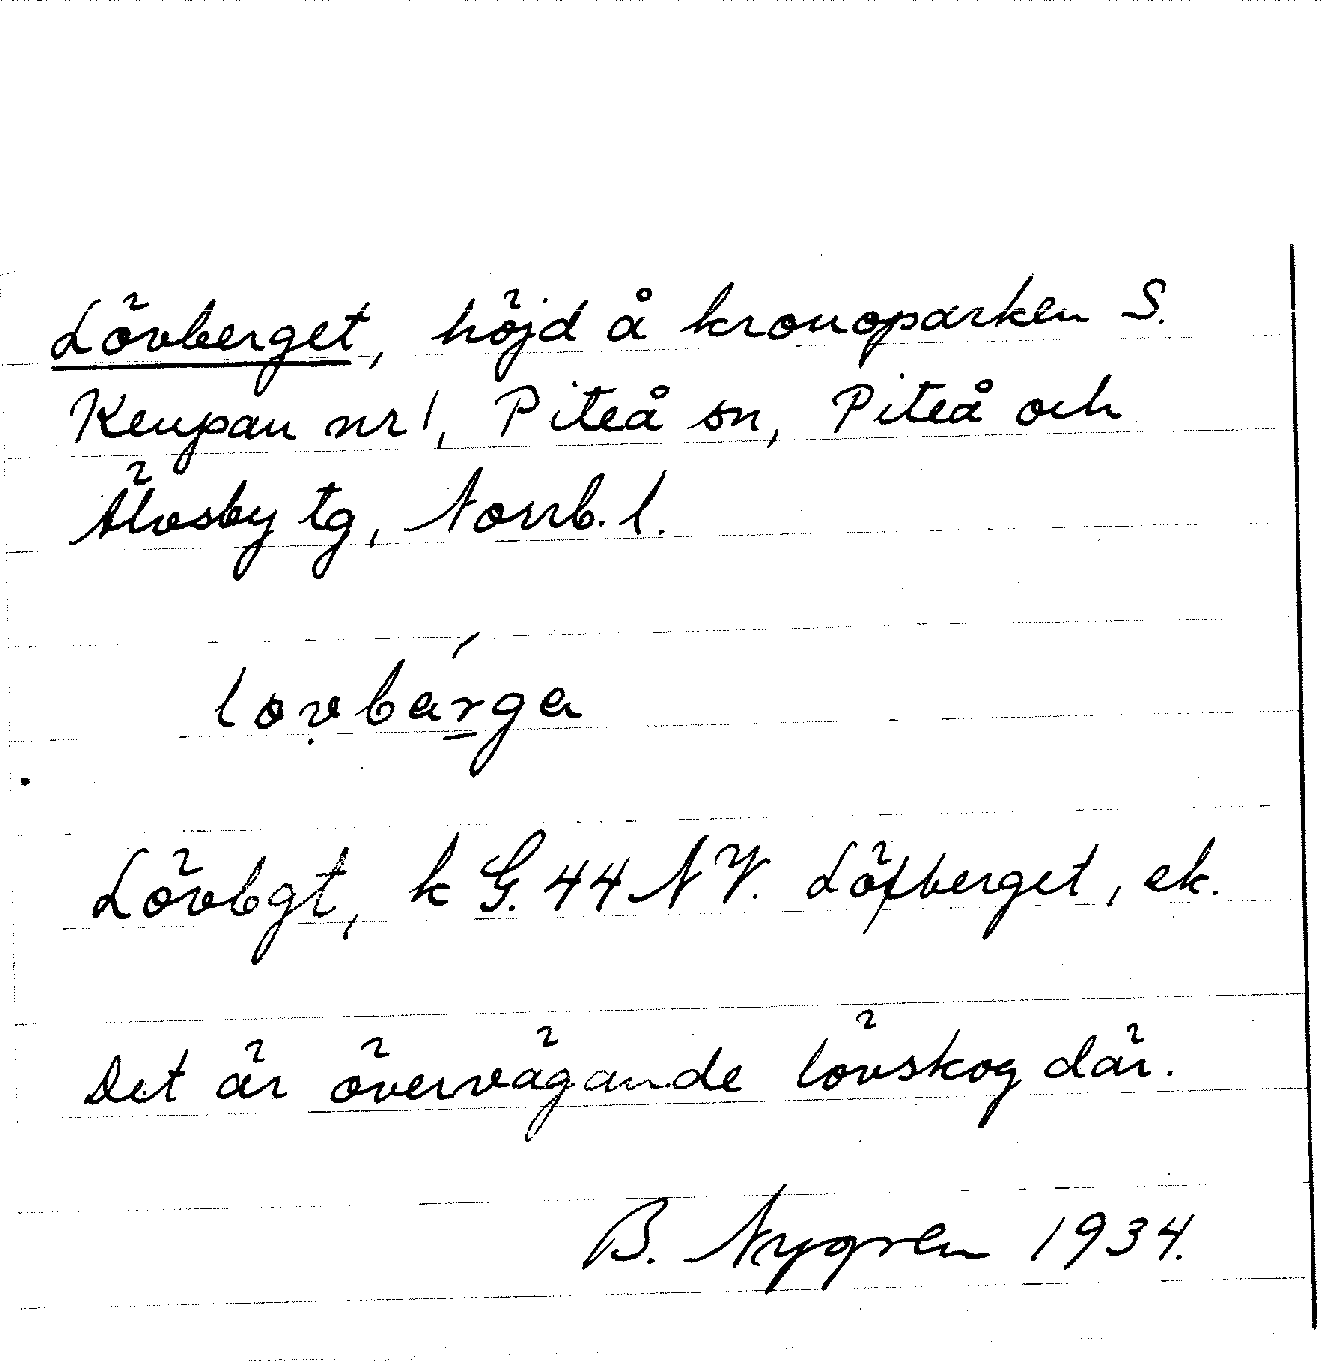 Lövberget, höjd å kronoparken S.
Keupan nr 1, Piteå sn, Piteå och
Älvsby tg, Norrb. l.
lovbárga
Lövbgt, k G. 44 N V. Löfberget, ek.
Det är övervägande lövskog där.
B. Nygren 1934.